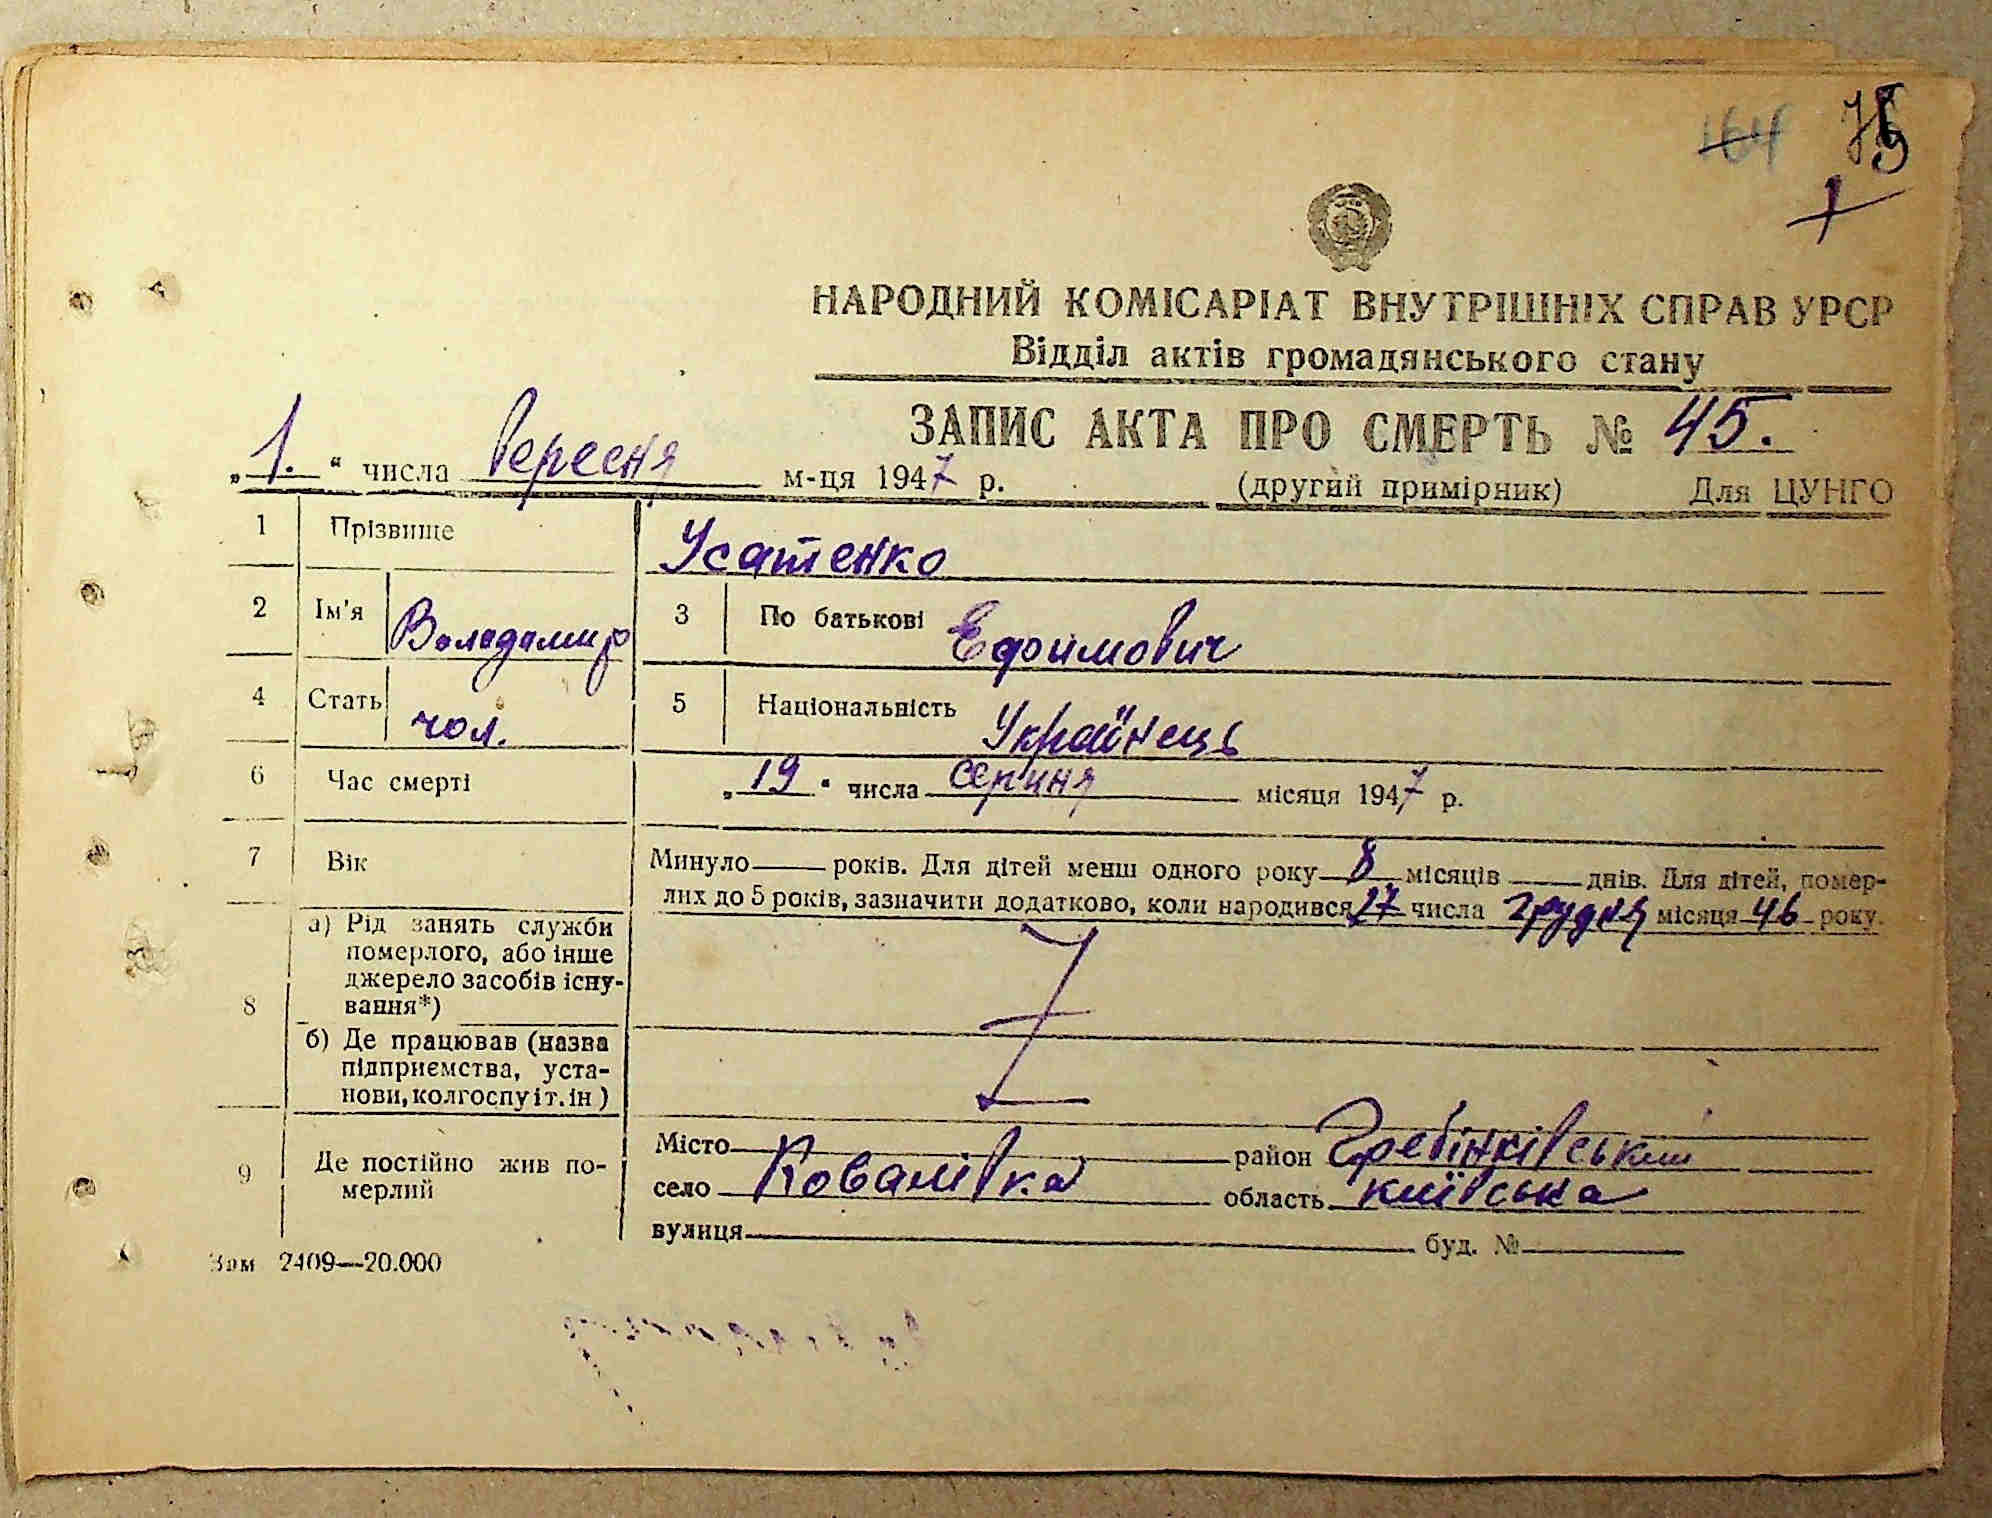 164 75
НАРОДНИЙ КОМІСАРІАТ ВНУТРІШНІХ СПРАВ УРСР
Відділ актів громадянського стану
ЗАПИС АКТА ПРО СМЕРТЬ № 45.
„1.“ числа вересня м-ця 1947 р. (другий примірник) Для ЦУНГО
1 Прізвище Усатенко
2 Ім'я Володимир 3 По батькові Ефимович
4 Стать чол. 5 Національність Українець
6 Час смерті „19“ числа серпня місяця 1947 р.
7 Вік Минуло — років. Для дітей менш одного року 8 місяців — днів. Для дітей, помер-
лих до 5 років, зазначити додатково, коли народився 27 числа грудня місяця 46 року.
8 а) Рід занять служби
померлого, або інше
джерело засобів існу-
вання*)
б) Де працював (назва
підприємства, уста-
нови, колгоспу і т. ін)
9 Де постійно жив по-
мерлий
Місто район Гребінківський
село Ковалівка область київська
вулиця буд. №
Зам 2409—20.000